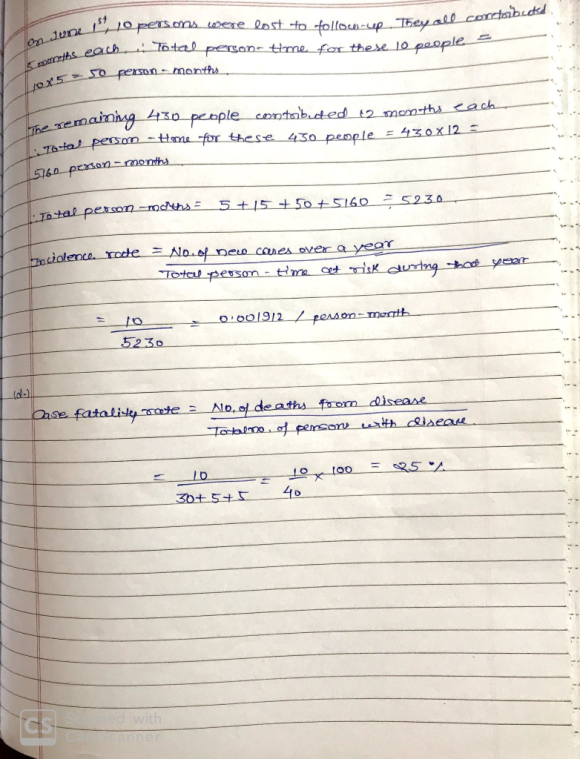 On June 1st, 10 persons were lost to follow-up. They all contributed
5 months each. ∴ Total person-time for these 10 people =
10×5 = 50 person-months.
The remaining 430 people contributed 12 months each.
∴ Total person-time for these 430 people = 430×12 =
5160 person-months
∴ Total person-months = 5 + 15 + 50 + 5160 = 5230.
Incidence rate = No. of new cases over a year
Total person-time at risk during that year
= 10 = 0.001912 / person-month
5230
(d.)
Case fatality rate = No. of deaths from disease
Total no. of persons with disease.
= 10 = 10 × 100 = 25 %
30+5+5 40
CS Scanned with
CamScanner